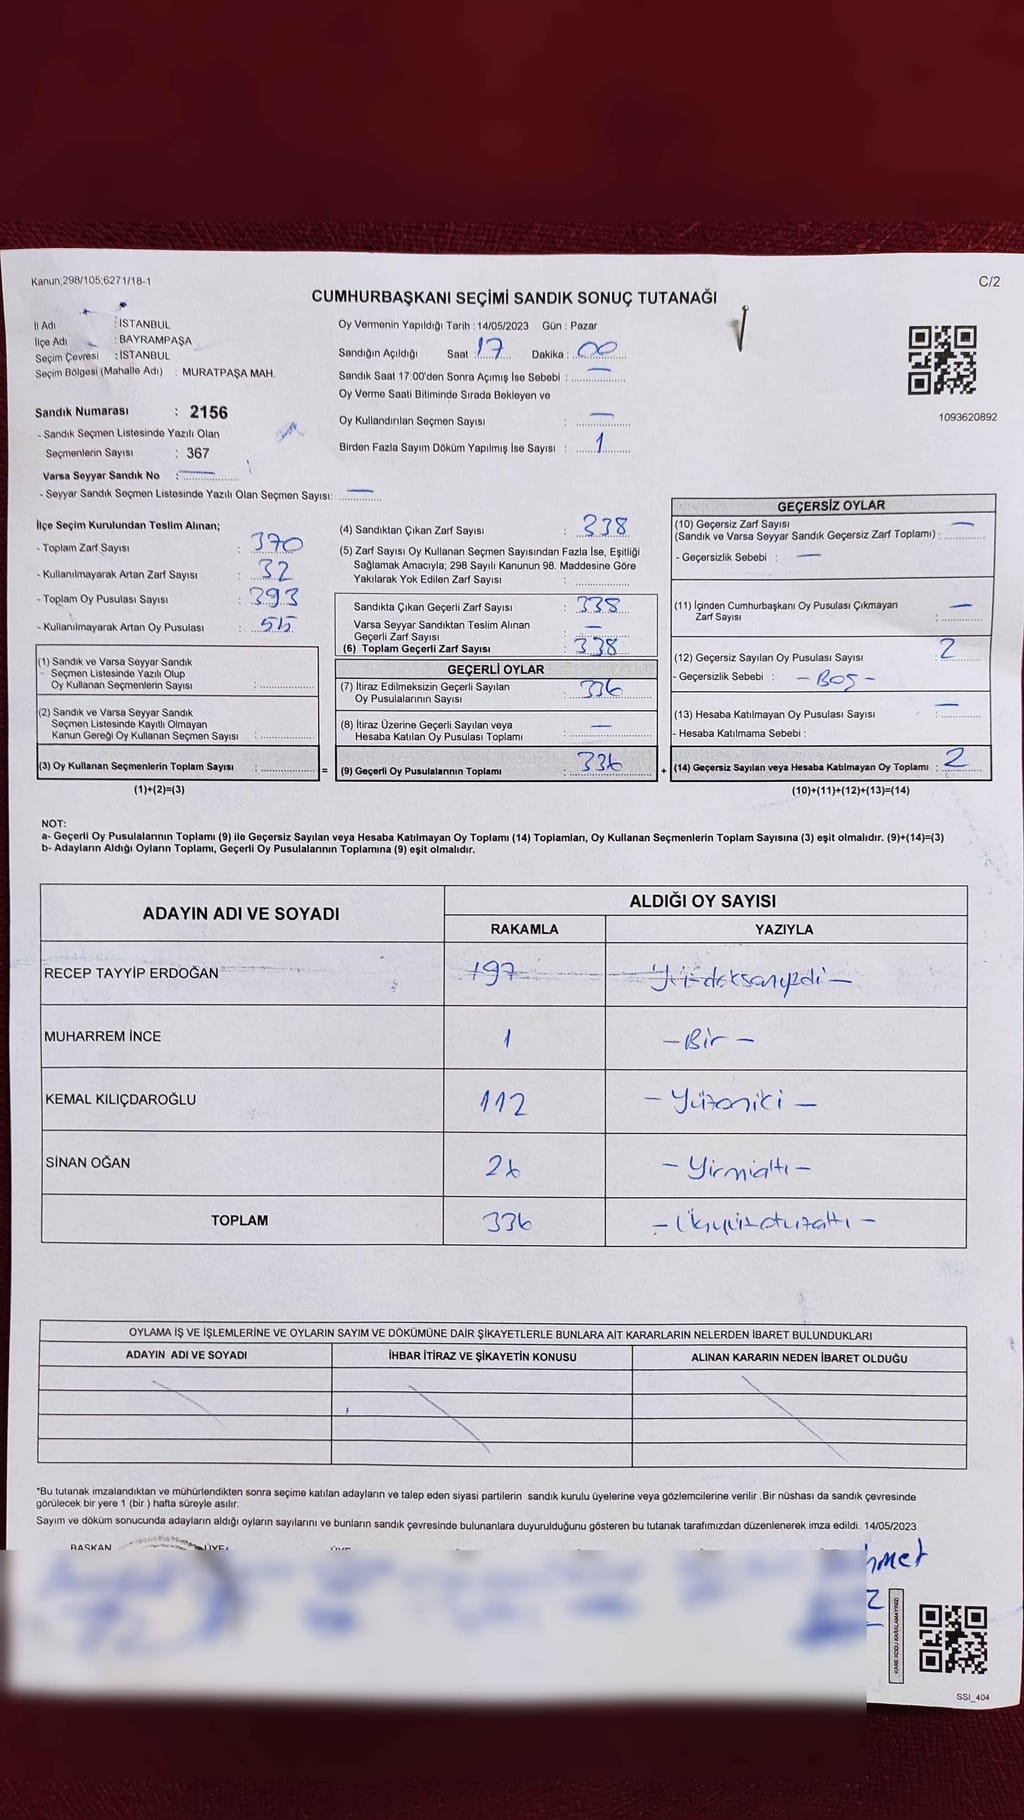 Kanun;298/105;6271/18-1
C/2
CUMHURBAŞKANI SEÇİMİ SANDIK SONUÇ TUTANAĞI
İl Adı : İSTANBUL
İlçe Adı : BAYRAMPAŞA
Seçim Çevresi : İSTANBUL
Seçim Bölgesi (Mahalle Adı) : MURATPAŞA MAH.
Sandık Numarası : 2156
- Sandık Seçmen Listesinde Yazılı Olan
Seçmenlerin Sayısı : 367
Varsa Seyyar Sandık No : —
- Seyyar Sandık Seçmen Listesinde Yazılı Olan Seçmen Sayısı: —
Oy Vermenin Yapıldığı Tarih : 14/05/2023 Gün : Pazar
Sandığın Açıldığı Saat : 17 Dakika : 00
Sandık Saat 17:00'den Sonra Açımış İse Sebebi : —
Oy Verme Saati Bitiminde Sırada Bekleyen ve
Oy Kullandırılan Seçmen Sayısı : —
Birden Fazla Sayım Döküm Yapılmış İse Sayısı : 1
1093620892
İlçe Seçim Kurulundan Teslim Alınan;
- Toplam Zarf Sayısı : 370
- Kullanılmayarak Artan Zarf Sayısı : 32
- Toplam Oy Pusulası Sayısı : 393
- Kullanılmayarak Artan Oy Pusulası : 55
(1) Sandık ve Varsa Seyyar Sandık
Seçmen Listesinde Yazılı Olup
Oy Kullanan Seçmenlerin Sayısı :
(2) Sandık ve Varsa Seyyar Sandık
Seçmen Listesinde Kayıtlı Olmayan
Kanun Gereği Oy Kullanan Seçmen Sayısı :
(3) Oy Kullanan Seçmenlerin Toplam Sayısı : =
(1)+(2)=(3)
(4) Sandıktan Çıkan Zarf Sayısı : 338
(5) Zarf Sayısı Oy Kullanan Seçmen Sayısından Fazla İse, Eşitliği
Sağlamak Amacıyla; 298 Sayılı Kanunun 98. Maddesine Göre
Yakılarak Yok Edilen Zarf Sayısı :
Sandıkta Çıkan Geçerli Zarf Sayısı : 338
Varsa Seyyar Sandıktan Teslim Alınan
Geçerli Zarf Sayısı : —
(6) Toplam Geçerli Zarf Sayısı : 338
GEÇERLİ OYLAR
(7) İtiraz Edilmeksizin Geçerli Sayılan
Oy Pusulalarının Sayısı : 336
(8) İtiraz Üzerine Geçerli Sayılan veya
Hesaba Katılan Oy Pusulası Toplamı : —
(9) Geçerli Oy Pusulalarının Toplamı : 336 +
GEÇERSİZ OYLAR
(10) Geçersiz Zarf Sayısı
(Sandık ve Varsa Seyyar Sandık Geçersiz Zarf Toplamı) : —
- Geçersizlik Sebebi : —
(11) İçinden Cumhurbaşkanı Oy Pusulası Çıkmayan
Zarf Sayısı : —
(12) Geçersiz Sayılan Oy Pusulası Sayısı : 2
- Geçersizlik Sebebi : - BOŞ -
(13) Hesaba Katılmayan Oy Pusulası Sayısı : —
- Hesaba Katılmama Sebebi :
(14) Geçersiz Sayılan veya Hesaba Katılmayan Oy Toplamı : 2
(10)+(11)+(12)+(13)=(14)
NOT:
a- Geçerli Oy Pusulalarının Toplamı (9) ile Geçersiz Sayılan veya Hesaba Katılmayan Oy Toplamı (14) Toplamları, Oy Kullanan Seçmenlerin Toplam Sayısına (3) eşit olmalıdır. (9)+(14)=(3)
b- Adayların Aldığı Oyların Toplamı, Geçerli Oy Pusulalarının Toplamına (9) eşit olmalıdır.
ADAYIN ADI VE SOYADI
ALDIĞI OY SAYISI
RAKAMLA YAZIYLA
RECEP TAYYİP ERDOĞAN 197 Yüzdoksanyedi —
MUHARREM İNCE 1 — Bir —
KEMAL KILIÇDAROĞLU 112 — Yüzoniki —
SİNAN OĞAN 26 — Yirmialtı —
TOPLAM 336 — Üçyüzotuzaltı —
OYLAMA İŞ VE İŞLEMLERİNE VE OYLARIN SAYIM VE DÖKÜMÜNE DAİR ŞİKAYETLERLE BUNLARA AİT KARARLARIN NELERDEN İBARET BULUNDUKLARI
ADAYIN ADI VE SOYADI İHBAR İTİRAZ VE ŞİKAYETİN KONUSU ALINAN KARARIN NEDEN İBARET OLDUĞU
*Bu tutanak imzalandıktan ve mühürlendikten sonra seçime katılan adayların ve talep eden siyasi partilerin sandık kurulu üyelerine veya gözlemcilerine verilir .Bir nüshası da sandık çevresinde
görülecek bir yere 1 (bir ) hafta süreyle asılır.
Sayım ve döküm sonucunda adayların aldığı oyların sayılarını ve bunların sandık çevresinde bulunanlara duyurulduğunu gösteren bu tutanak tarafımızdan düzenlenerek imza edildi. 14/05/2023
BAŞKAN ÜYE ÜYE
hmet
KARE KODU KARALAMAYINIZ!
SSI_404